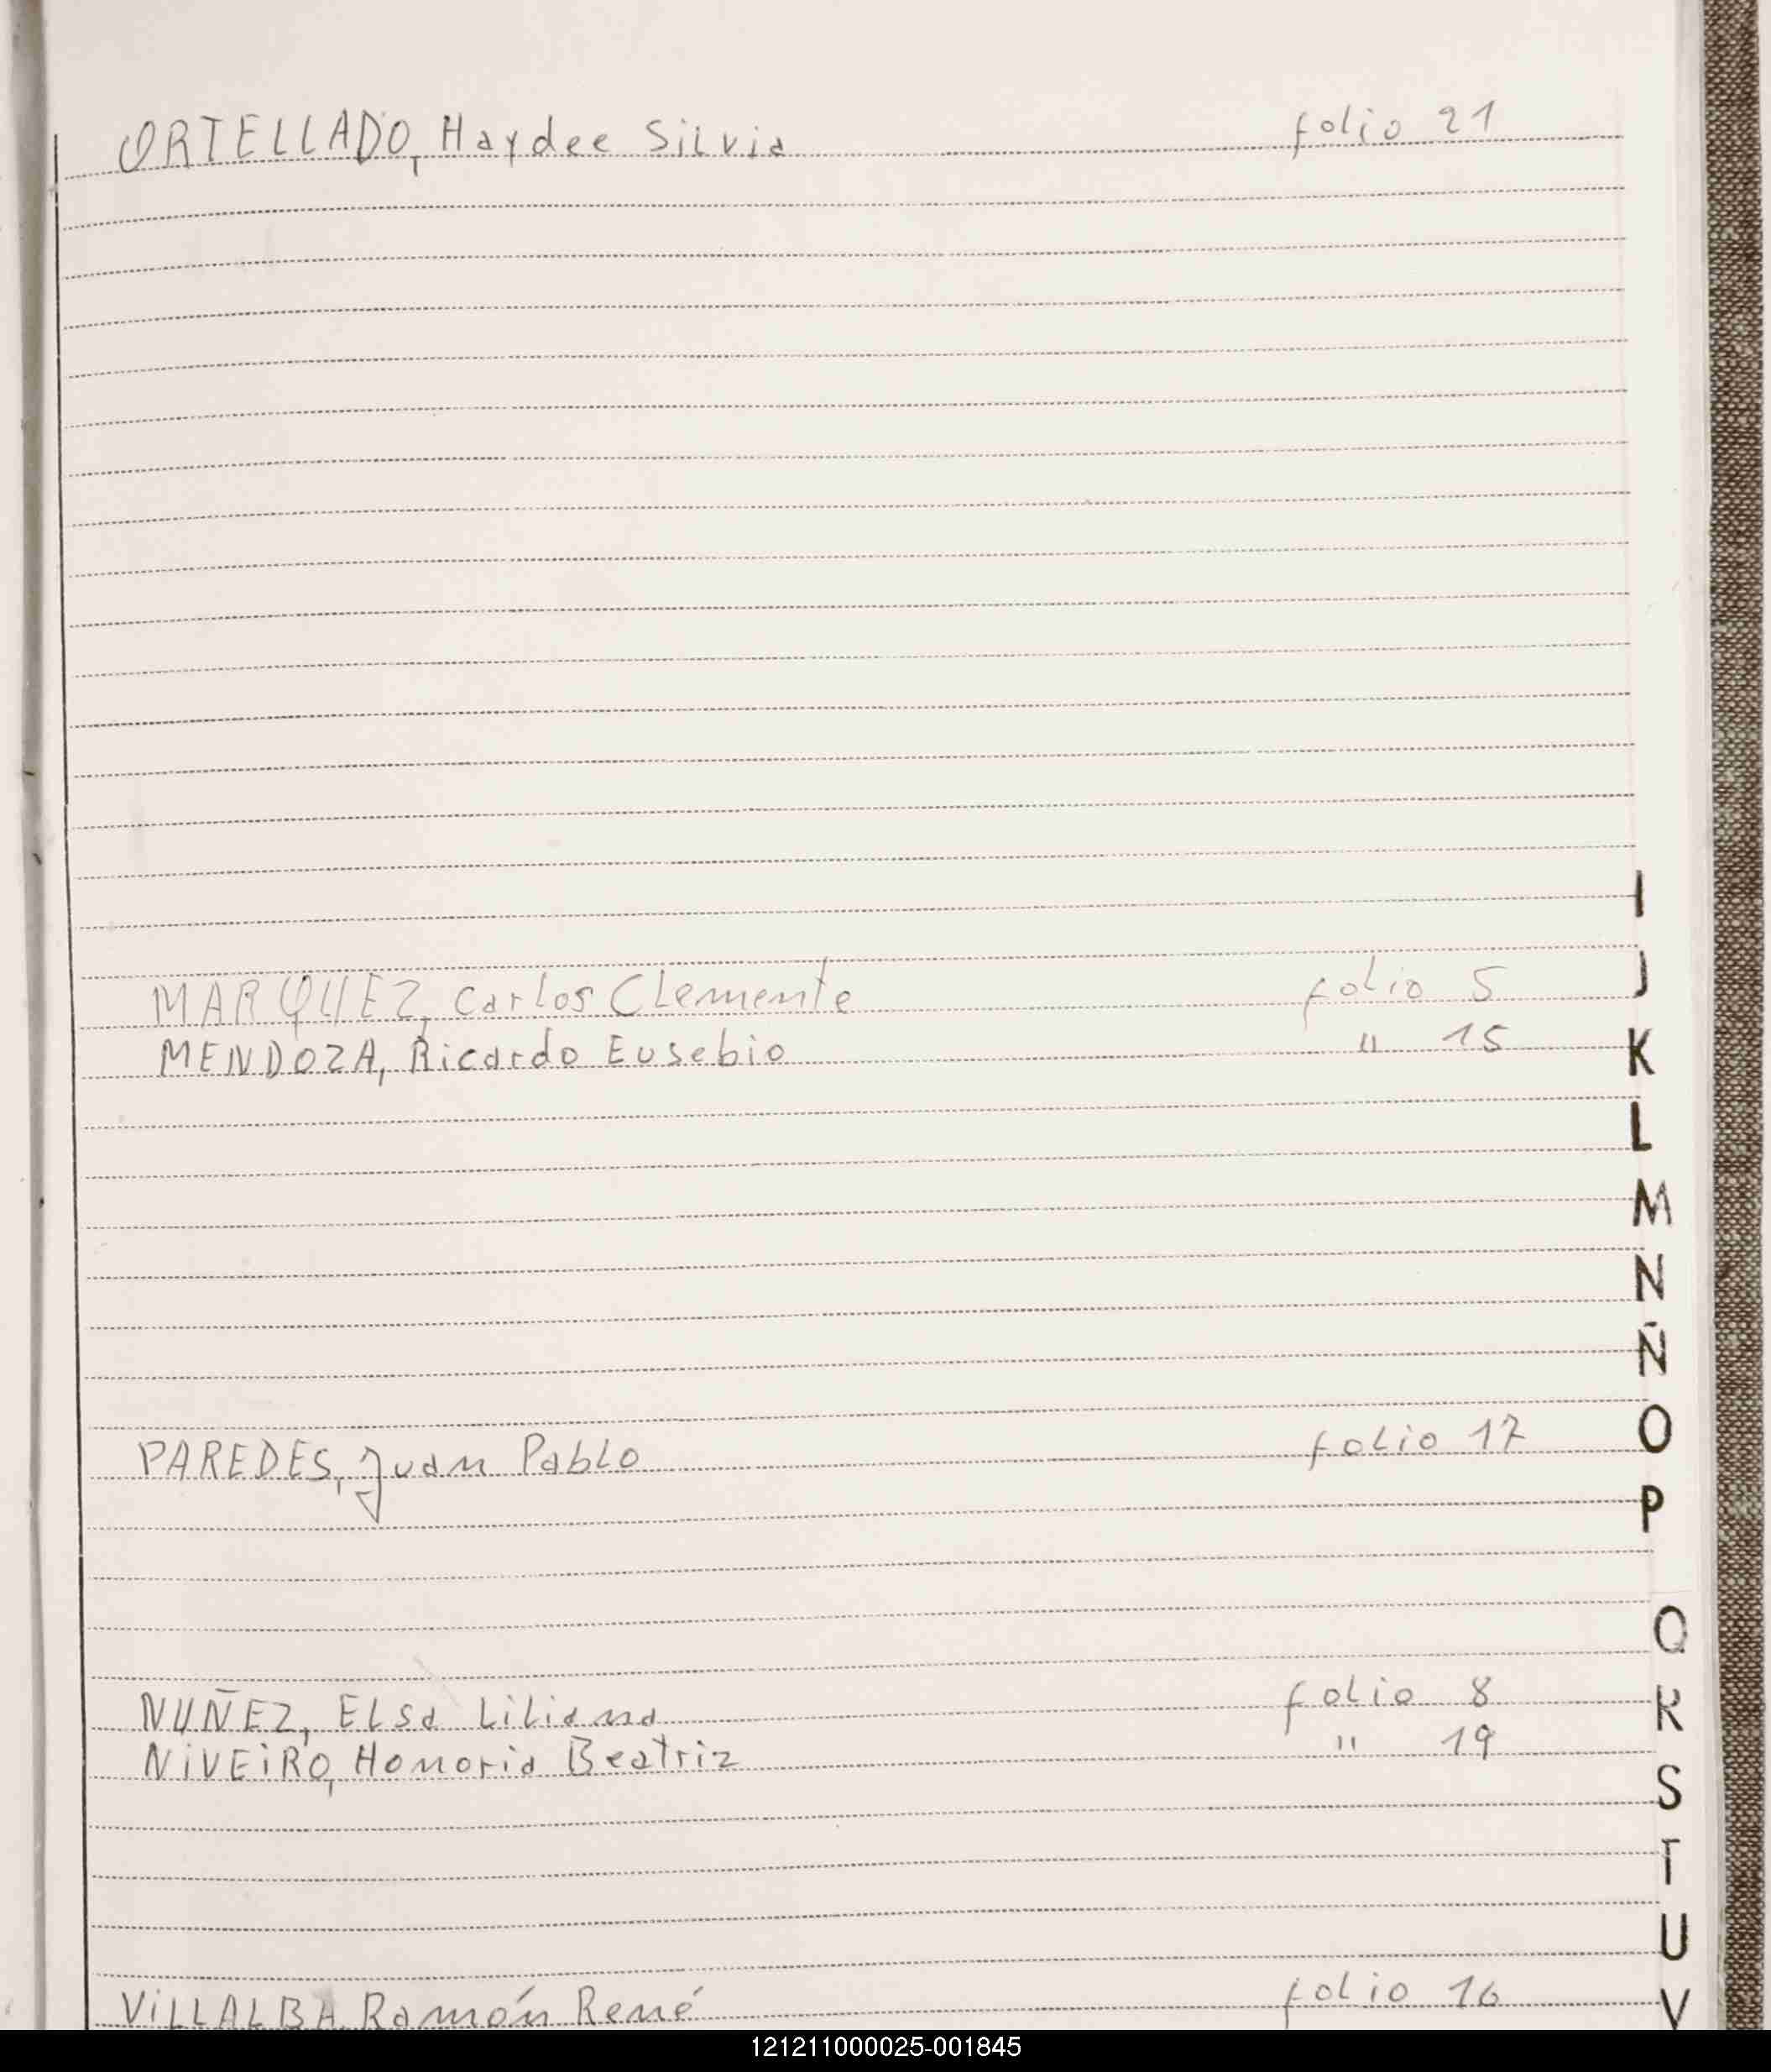 ORTELLADO, Haydee Silvia folio 21
I
J
MARQUEZ, Carlos Clemente folio 5
MENDOZA, Ricardo Eusebio " 15
K
L
M
N
Ñ
O
PAREDES, Juan Pablo folio 17
P
Q
NUÑEZ, Elsa Liliana folio 8
R
NiVEiRO, Honoria Beatriz " 19
S
T
U
ViLLALBA, Ramón René folio 16
V
121211000025-001845